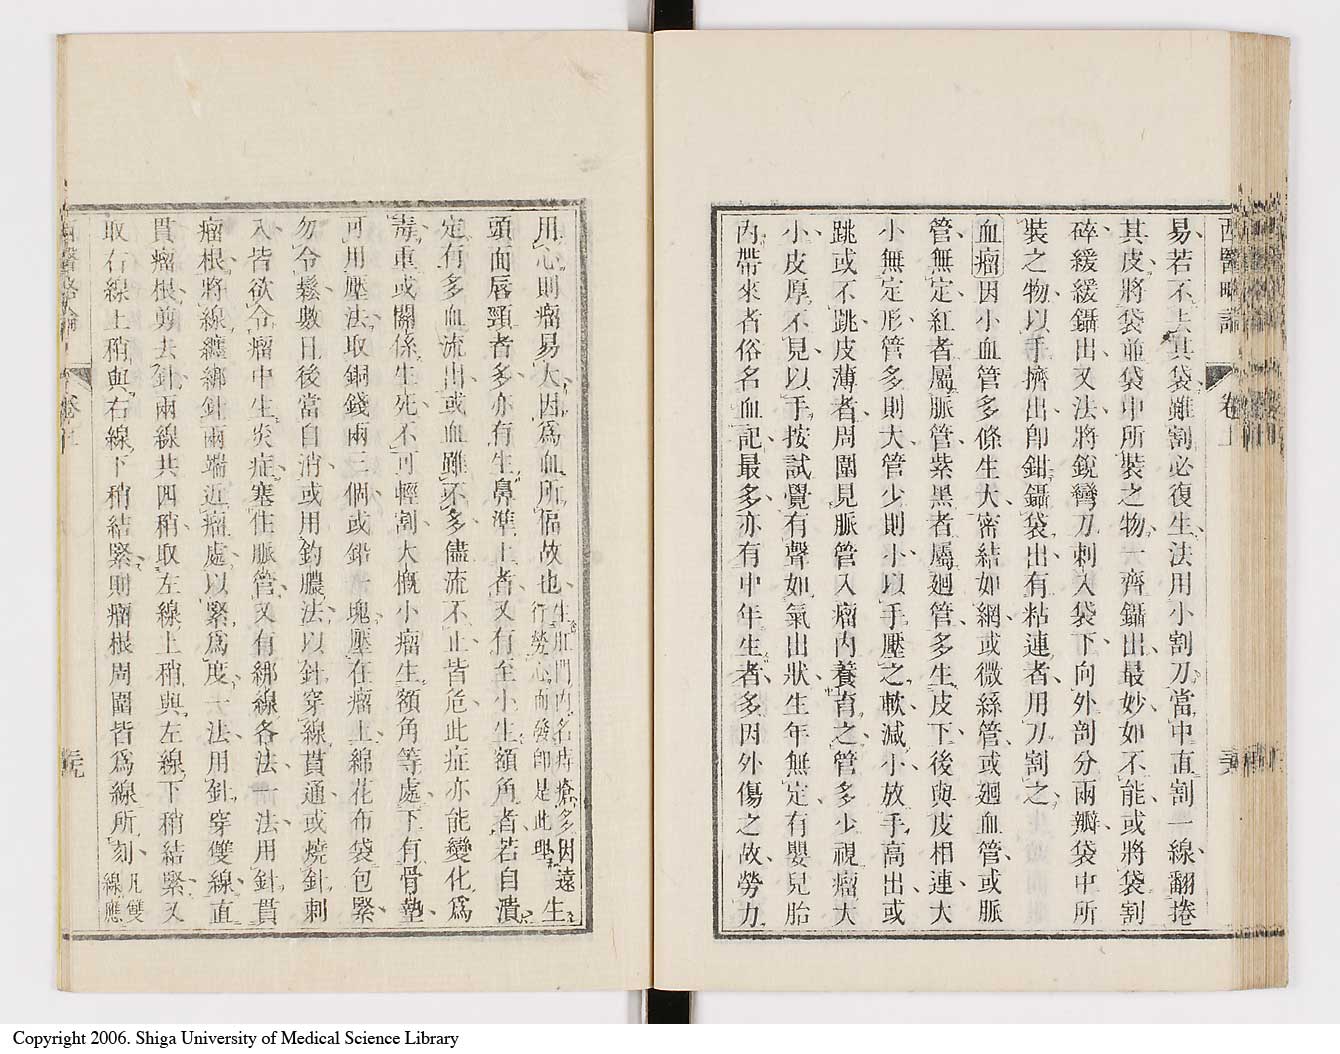 西醫略論
卷上
易若不去其袋雖割必復生法用小割刀當中直割一線翻捲
其皮將袋並袋中所裝之物一齊鑷出最妙如不能或將袋割
碎緩緩鑷出又法將銳彎刀刺入袋下向外剖分兩瓣袋中所
裝之物以手擠出卽鉗鑷袋出有粘連者用刀割之
血瘤因小血管多條生大密結如網或微絲管或廻血管或脈
管無定紅者屬脈管紫黑者屬廻管多生皮下後與皮相連大
小無定形管多則大管少則小以手壓之軟減小放手高出或
跳或不跳皮薄者周圍見脈管入瘤內養育之管多少視瘤大
小皮厚不見以手按試覺有聲如氣出狀生年無定有嬰兒胎
內帶來者俗名血記最多亦有中年生者多因外傷之故勞力
用心則瘤易大因爲血所偪故也生肛門內名痔瘡多因遠
行勞心而發卽是此理生
頭面唇頸者多亦有生鼻準上者又有至小生額角者若自潰
定有多血流出或血雖不多儘流不止皆危此症亦能變化爲
毒重或關係生死不可輕割大慨小瘤生額角等處下有骨墊
可用壓法取銅錢兩三個或鉛一塊壓在瘤上綿花布袋包緊
勿令鬆數日後當自消或用釣膿法以針穿線貫通或燒針刺
入皆欲令瘤中生炎症塞住脈管又有綁線各法一法用針貫
瘤根將線纏綁針兩端近瘤處以緊爲度一法用針穿雙線直
貫瘤根剪去針兩線共四稍取左線上稍與左線下稍結緊又
取右線上稍與右線下稍結緊則瘤根周圍皆爲線所刻凡雙
線應